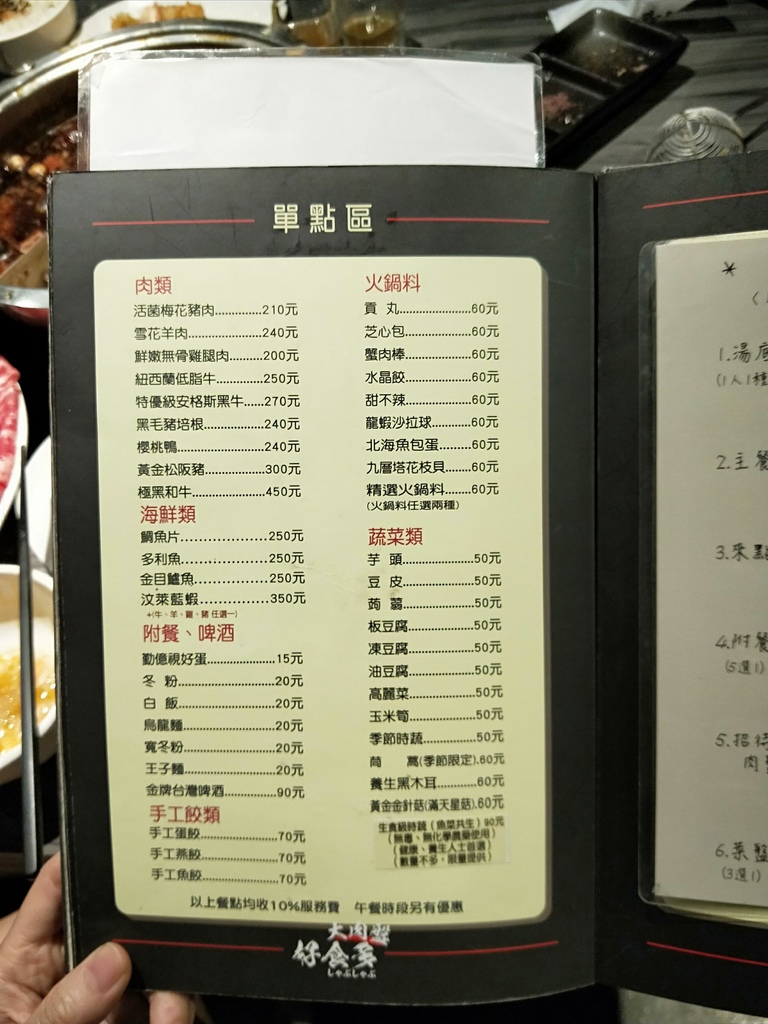 單點區
肉類
活菌梅花豬肉..............210元
雪花羊肉......................240元
鮮嫩無骨雞腿肉..........200元
紐西蘭低脂牛..............250元
特優級安格斯黑牛......270元
黑毛豬培根..................240元
櫻桃鴨..........................240元
黃金松阪豬..................300元
極黑和牛......................450元
海鮮類
鯛魚片......................250元
多利魚......................250元
金目鱸魚..................250元
汶萊藍蝦..................350元
+(牛、羊、雞、豬 任選一)
附餐、啤酒
勤億視好蛋........................15元
冬 粉..................................20元
白 飯..................................20元
烏龍麵..............................20元
寬冬粉..............................20元
王子麵..............................20元
金牌台灣啤酒..................90元
手工餃類
手工蛋餃..........................70元
手工燕餃..........................70元
手工魚餃..........................70元
火鍋料
貢 丸..........................60元
芝心包........................60元
蟹肉棒........................60元
水晶餃........................60元
甜不辣........................60元
龍蝦沙拉球................60元
北海魚包蛋................60元
九層塔花枝貝............60元
精選火鍋料................60元
(火鍋料任選兩種)
蔬菜類
芋 頭..........................50元
豆 皮..........................50元
蒟 蒻..........................50元
板豆腐........................50元
凍豆腐........................50元
油豆腐........................50元
高麗菜........................50元
玉米筍........................50元
季節時蔬....................50元
茼 蒿(季節限定).60元
養生黑木耳..............60元
黃金金針菇(滿天星菇).60元
生食級時蔬（魚菜共生）90元
（無毒、無化學農藥使用）
（健康、養生人士首選）
（數量不多，限量提供）
以上餐點均收10%服務費 午餐時段另有優惠
大肉盤
仔食多
しゃぶしゃぶ
*
1.湯底
(1人1種
2.主餐
3.來點
4.附餐
(5選1)
5.招待
肉盤
6.菜盤
(3選1)